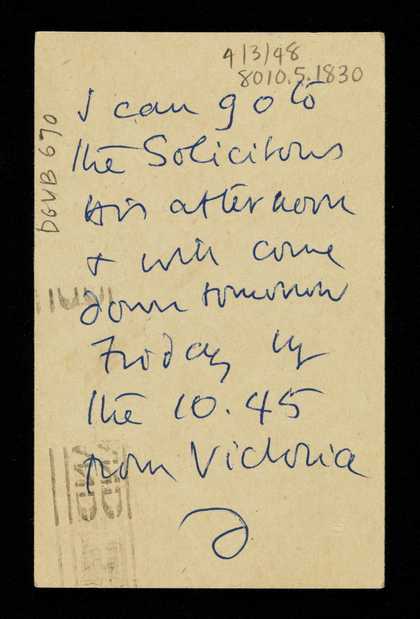 4/3/48
8010.5.1830
DGVB 670
I can go to
the Solicitors
this afternoon
& will come
down tomorrow
Friday by
the 10.45
from Victoria
D